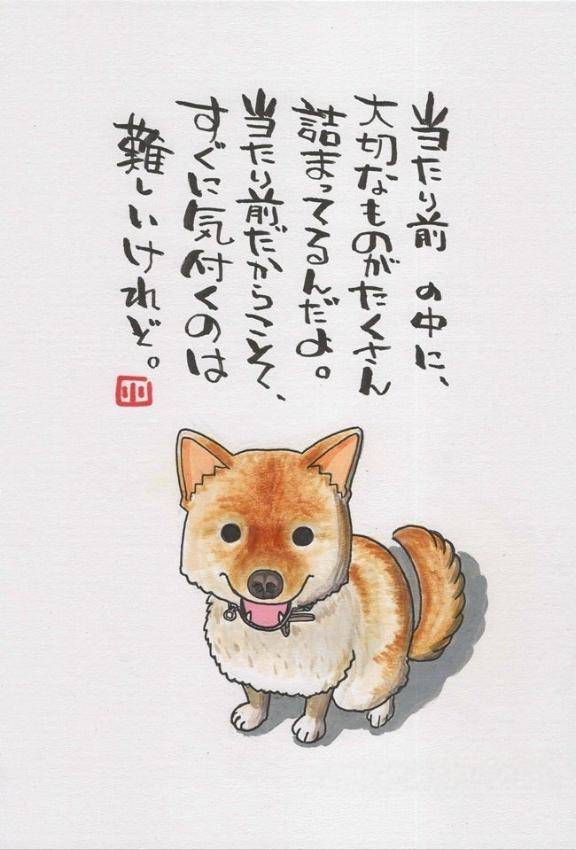 当たり前 の中に、
大切なものがたくさん
詰まってるんだよ。
当たり前だからこそ、
すぐに気付くのは
難しいけれど。